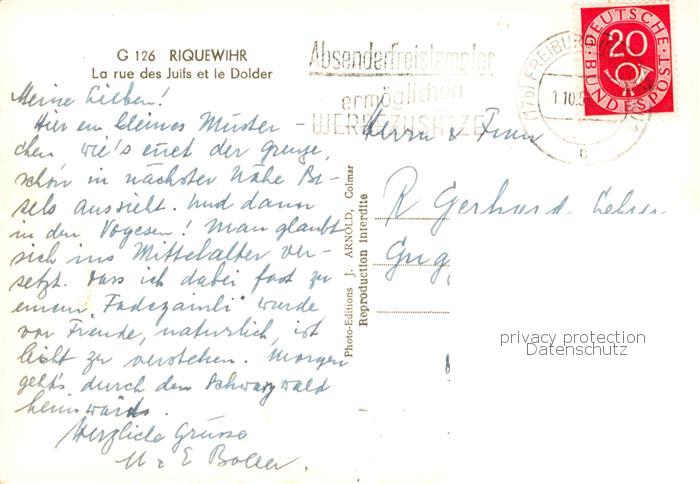 G 126 RIQUEWIHR
La rue des Juifs et le Dolder
Absenderfreistempler
ermöglichen
WERBEZUSÄTZE
(17b) FREIBURG
1.10.5
c
DEUTSCHE BUNDESPOST
20
Meine Lieben!
Hier ein kleines Muster-
chen wie's enet der Grenze,
schön in nächster Nähe Ba-
sels aussieht. Und dann
in den Vogesen! Man glaubt
sich ins Mittelalter ver-
setzt. Dass ich dabei fast zu
einem "Fadezainli" wurde
vor Freude, natürlich, ist
leicht zu verstehen. Morgen
geht's durch den Schwarzwald
heimwärts.
Herzliche Grüsse
M & E Boller.
Photo-Editions J. ARNOLD, Colmar
Reproduction interdite
Herrn & Frau
R Gerhard Lehrer
Gugg
privacy protection
Datenschutz